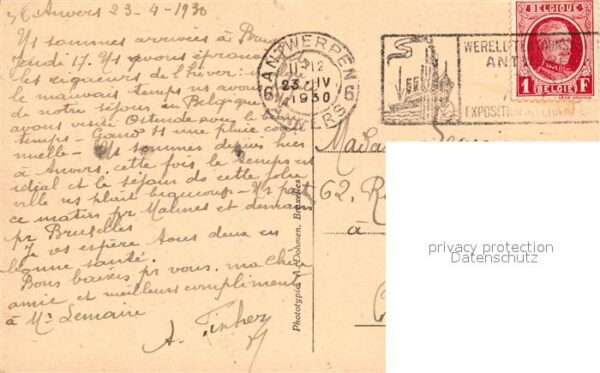 Anvers 23-4-1930
Ns sommes arrivées à
Jeudi 17. Ns avons éprouvé
les rigueurs de l'hiver
le mauvais temps ns avons
de notre séjour en Belgique
avons visité Ostende avec le beau
temps - Gand ss une pluie
- Ns sommes depuis hier
à Anvers, cette fois le temps est
idéal et le séjour de cette jolie
ville ns plait beaucoup - Ns
ce matin pr Malines et demain
pr Bruxelles
Je vs espère tous deux en
bonne santé.
Bons baisers pr vous, ma chère
amie et meilleurs compliments
à Mr Lemaire
A.
ANTWERPEN
12
23 IV
1930
6 6
ANVERS
WERELDTENTOONST
ANT
EXPOSITION
BELGIQUE
1 F
BELGIE
Madame
62, R
à
Phototypie A. Dohmen, Bruxelles
privacy protection
Datenschutz